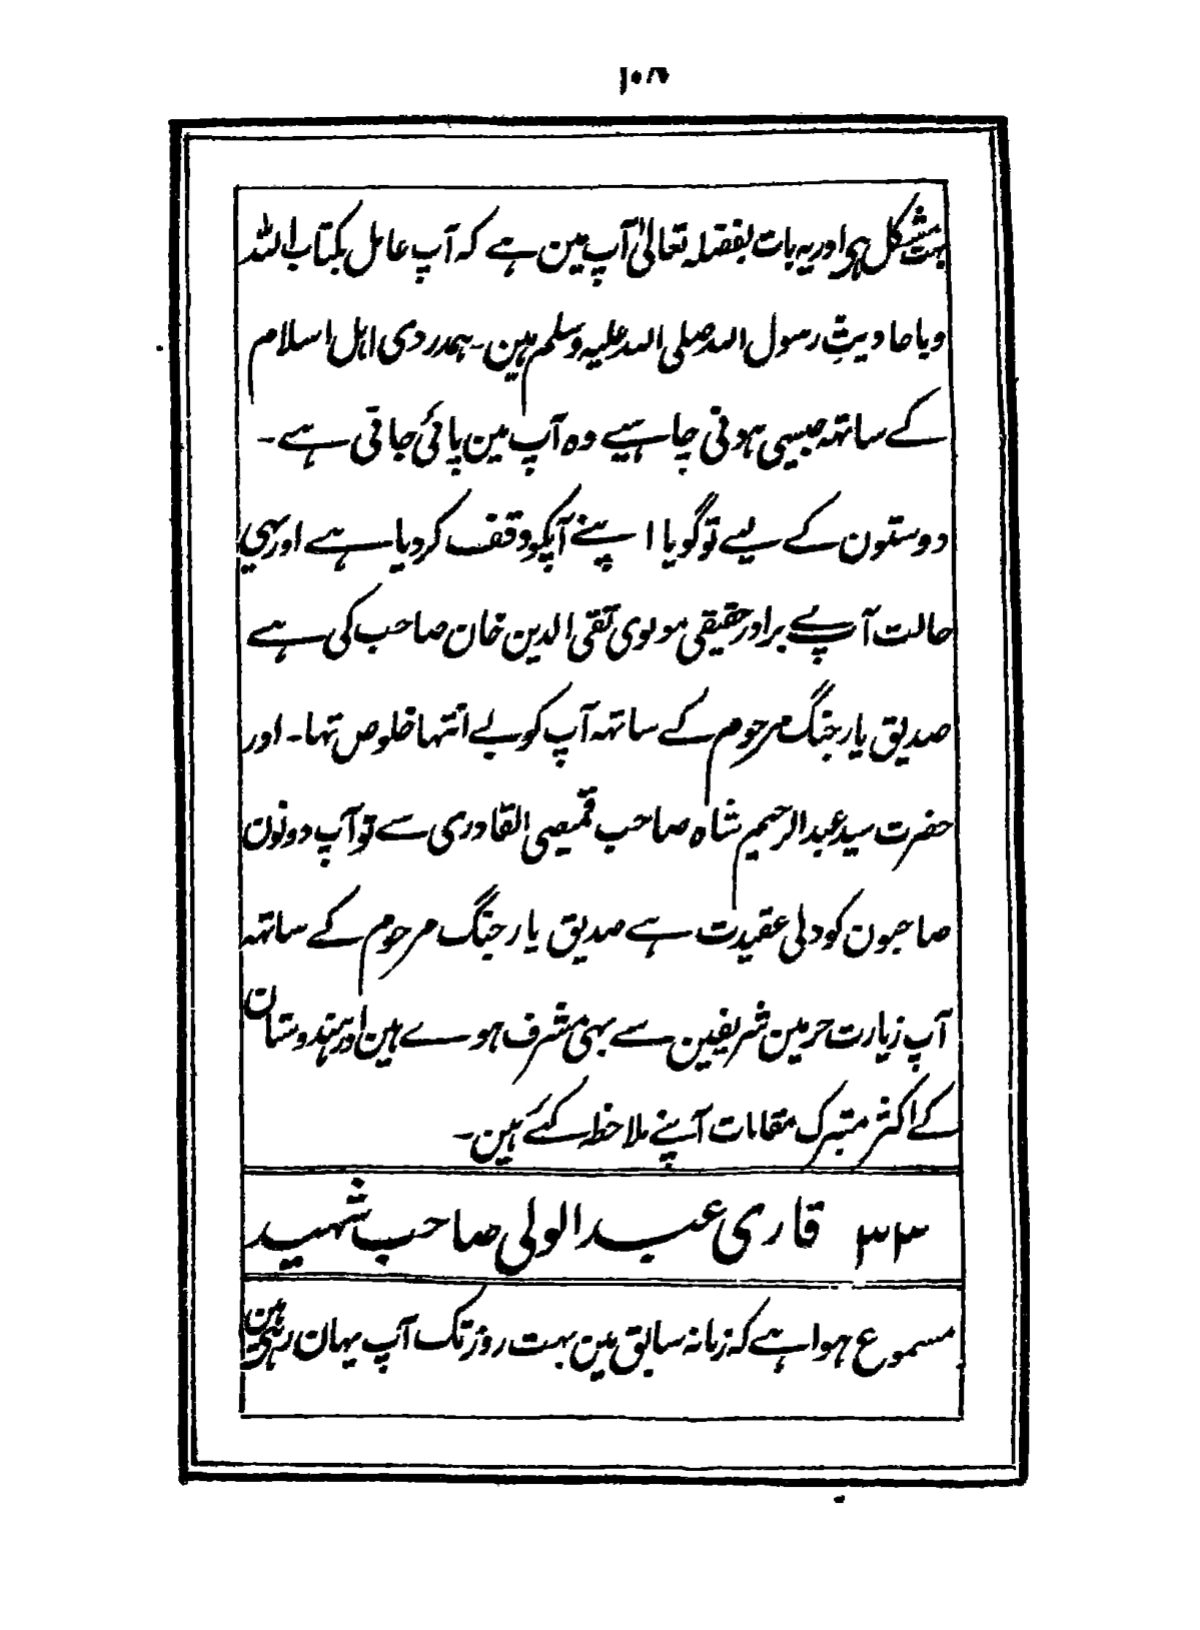 بہت مشکل ہی اور یہ بات بفضلہ تعالیٰ آپ مین ہے کہ آپ عامل بکتاب اللہ
و باحادیثِ رسول اللہ صلی اللہ علیہ وسلم ہین۔ ہمدردی اہل اسلام
کے ساتھہ جیسی ہونی چاہیے وہ آپ مین پائی جاتی ہے۔
دوستون کے لیے تو گویا اپنے آپکو وقف کردیا ہے اور یہی
حالت آپ کے برادر حقیقی مولوی تقی الدین خان صاحب کی ہے
صدیق یار جنگ مرحوم کے ساتھہ آپ کو بے انتہا خلوص تہا۔ اور
حضرت سید عبدالرحیم شاہ صاحب قمیصی القادری سے تو آپ دونون
صاحبون کو دلی عقیدت ہے صدیق یار جنگ مرحوم کے ساتھہ
آپ زیارت حرمین شریفین سے بہی مشرف ہوے ہین اور ہندوستان
کے اکثر متبرک مقامات آپنے ملاحظہ کئے ہین۔
۳۳ قاری عبدالولی صاحب شہید
مسموع ہوا ہے کہ زمانہ سابق مین بہت روز تک آپ یہان رہے ہین